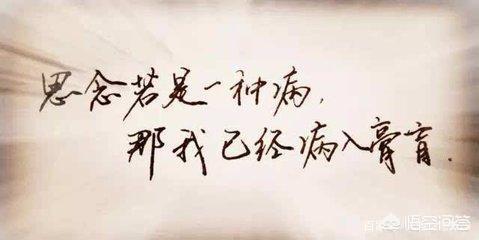 思念若是一种病，
那我已经病入膏肓.
悟空问答